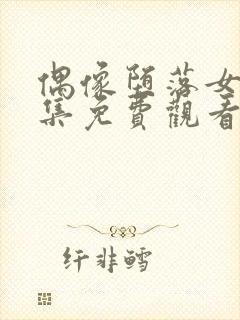 偶像堕落女
集免費觀看
纤非鳕